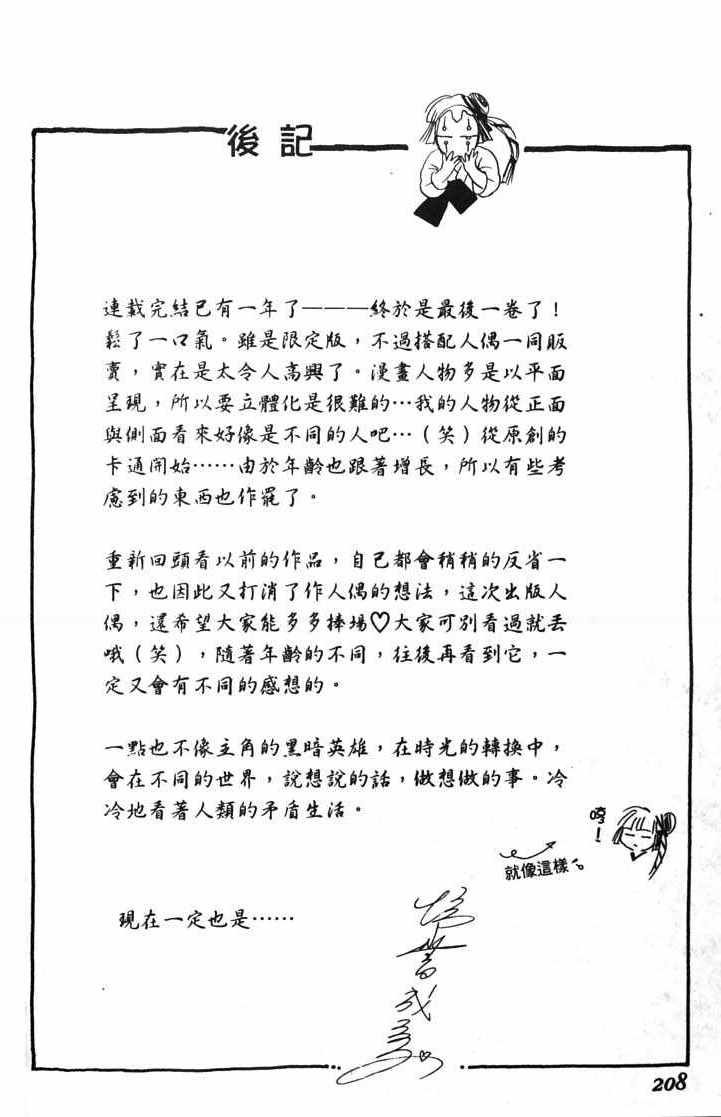 後記
連載完結已有一年了———終於是最後一卷了！
鬆了一口氣。雖是限定版，不過搭配人偶一同販
賣，實在是太令人高興了。漫畫人物多是以平面
呈現，所以要立體化是很難的…我的人物從正面
與側面看來好像是不同的人吧…（笑）從原創的
卡通開始……由於年齡也跟著增長，所以有些考
慮到的東西也作罷了。
重新回頭看以前的作品，自己都會稍稍的反省一
下，也因此又打消了作人偶的想法，這次出版人
偶，還希望大家能多多捧場♡大家可別看過就丟
哦（笑），隨著年齡的不同，往後再看到它，一
定又會有不同的感想的。
一點也不像主角的黑暗英雄，在時光的轉換中，
會在不同的世界，說想說的話，做想做的事。冷
冷地看著人類的矛盾生活。
哼！
就像這樣。
現在一定也是……
208